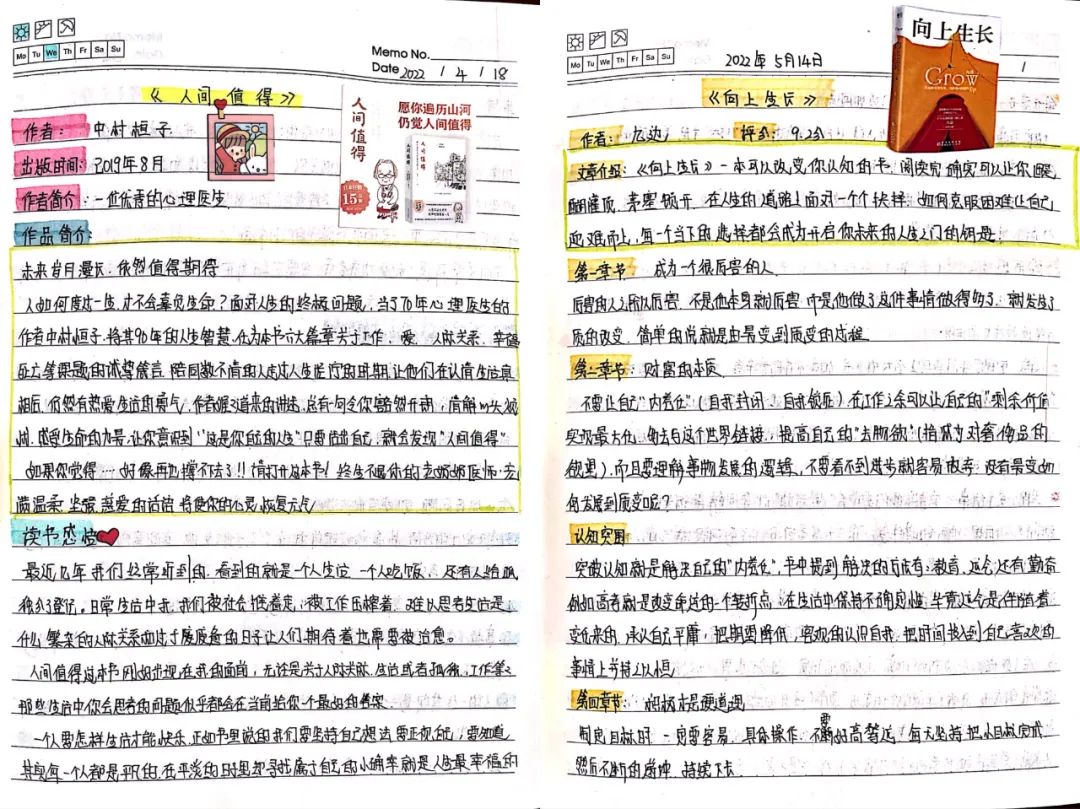 Mo Tu We Th Fr Sa Su
Memo No.
Date 2022 / 4 / 18
《人间值得》
作者: 中村恒子
出版时间: 2019年8月
作者简介: 一位优秀的心理医生
人间值得
愿你遍历山河
仍觉人间值得
作品简介:
未来岁月漫长,依然值得期待
人如何度过一生,才不会辜负生命?面对人生的终极问题,当了70年心理医生的
作者中村恒子,将其90年的人生智慧,化为本书六大篇章关于工作、爱、人际关系、幸福
独立等课题的诚挚箴言,陪同数不清的人走过人生低谷的时期,让他们在认清生活真
相后,仍然有热爱生活的勇气,作者娓娓道来的讲述,总有一句令你豁然开朗,
感受生命的力量,让你意识到"这是你自己的人生"只要活出自己,就会发现"人间值得"
如果你觉得…好像再也撑不下去了!!请打开这本书!
满温柔、坚定、慈爱的话语,将使你的心灵恢复元气
读书感悟
最近几年我们经常听到的、看到的就是一个人生活,一个人吃饭,还有人给孤
独分了登记。日常生活中我,我们被社会推着走,被工作压榨着,难以思考生活是
什么,繁杂的人际关系
人间值得这本书刚好出现在我的面前,无论是关于人际关系、生活或者孤独、工作等等
那些生活中你会思考的问题似乎都会在当前给你一个最好的答案
一个人要怎样生活才能快乐,正如书里说的我们要坚持自己想法,要正视自己,要知道
其实每一个人都是平凡的,在平淡的日子里却寻找属于自己的小确幸就是人生最幸福的
Mo Tu We Th Fr Sa Su
2022年5月14日
1
向上生长
Grow
《向上生长》
作者: 九边 评分: 9.2分
文章介绍:《向上生长》一本可以改变你认知的书,阅读完确实可以让你醍
醐灌顶、茅塞顿开,在人生的道路上面对一个个抉择,如何克服困难让自己
迎难而上,每一个当下的选择都会成为开启你未来的人生之门的钥匙
第一章节: 成为一个很厉害的人
厉害的人之所以厉害,不是他本身就厉害,而是他做了这件事情做得多了,就发生了
质的改变,简单的说就是由量变到质变的过程
第二章节: 财富的本质
不要让自己"内卷化"(自我封闭、自我锁死)在工作之余可以让自己的"剩余价值"
实现最大化,每去与这个世界链接,提高自己的"去脂欲"(指降为对奢侈品的
欲望),而且要理解事物发展的逻辑,不要看不到进步就容易放弃,没有量变如
何发展到质变呢?
认知突围
突破认知就是解决自己的"内卷化",书中提到解决的方法有:教育、运气还有勤奋
例如高考就是改变命运的一个转折点,在生活中保持不确定性,毕竟运气是伴随着
变化来的,承认自己平庸,把期望降低,客观的认识自我,把时间投入到自己喜欢的
事情上并持之以恒
第四章节:
制定目标时一定要容易、具体操作,不要好高骛远,每天坚持把小目标完成
然后不断的